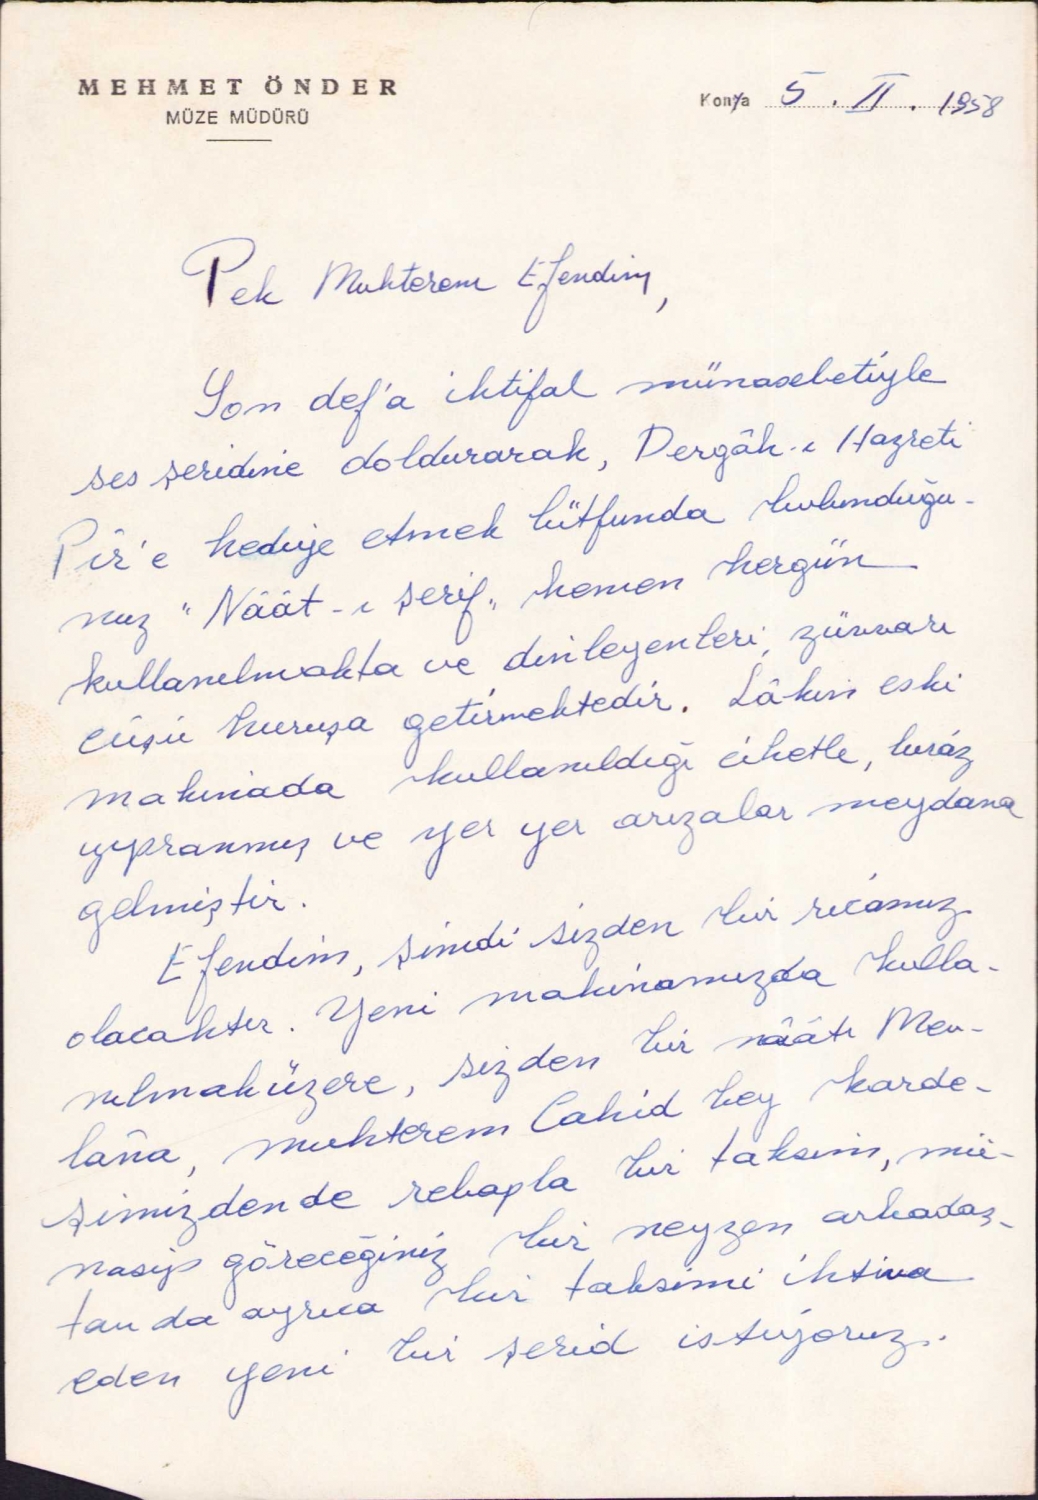 MEHMET ÖNDER
MÜZE MÜDÜRÜ
Konya 5 . II . 1958
Pek Muhterem Efendim,
Son def'a ihtifal münasebetiyle
ses şeridine doldurarak, Dergâh-ı Hazreti
Pîr'e hediye etmek lütfunda bulunduğu-
nuz "Näät-ı şerif" hemen hergün
kullanılmakta ve dinleyenleri, züvvarı
cûşü huruşa getirmektedir. Lâkin eski
makinada kullanıldığı cihetle, biraz
yıpranmış ve yer yer arızalar meydana
gelmiştir.
Efendim, şimdi sizden bir ricamız
olacaktır. Yeni makinamızda kulla-
nılmaküzere, sizden bir nââtı Mev-
lâna, muhterem Cahid bey karde-
şimizdende rebapla bir taksim, mü-
nasip göreceğiniz bir neyzen arkadaş-
tan da ayrıca bir taksimi ihtiva
eden yeni bir şerid istiyoruz.